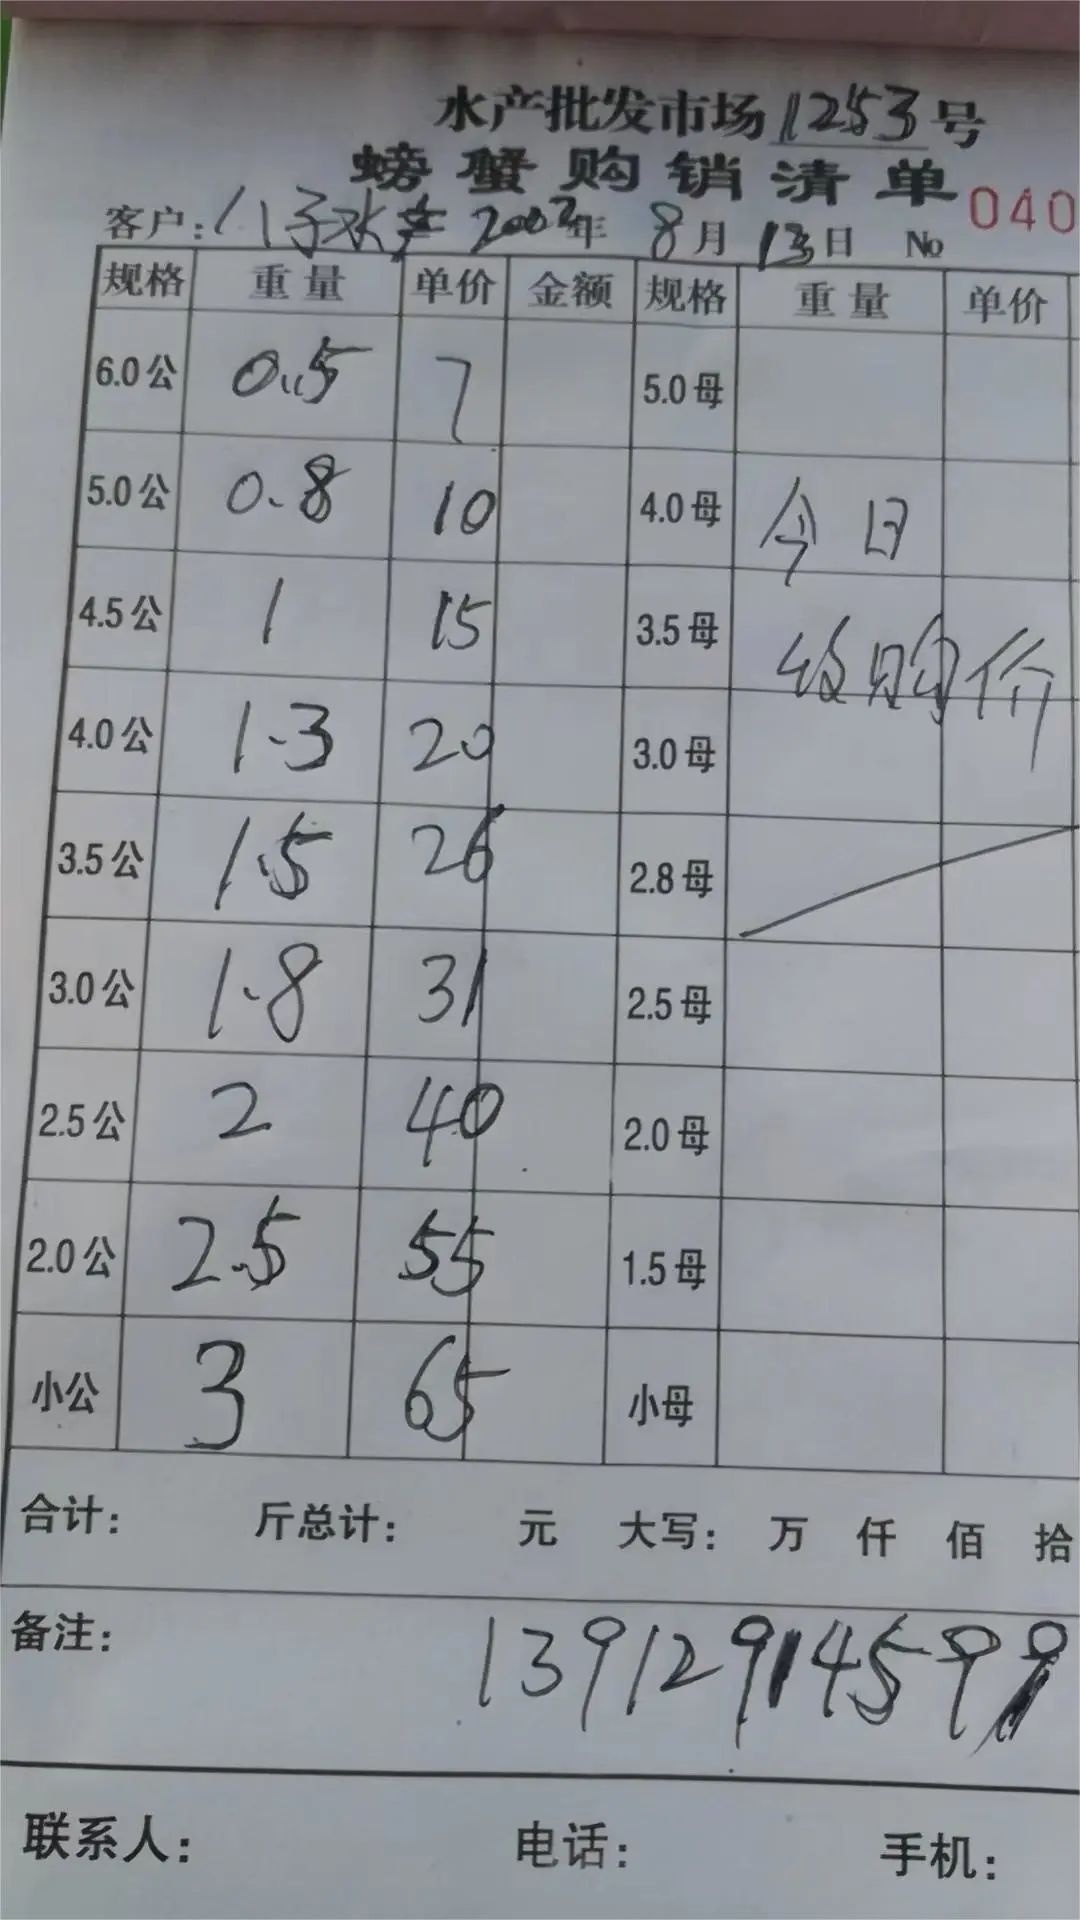 水产批发市场1253号
螃蟹购销清单
客户: 八子水产 2002年 8月 13日 № 040
规格 重量 单价 金额 规格 重量 单价
6.0公 0.5 7 5.0母
5.0公 0.8 10 4.0母 今日
4.5公 1 15 3.5母 收购价
4.0公 1.3 20 3.0母
3.5公 1.5 26 2.8母
3.0公 1.8 31 2.5母
2.5公 2 40 2.0母
2.0公 2.5 55 1.5母
小公 3 65 小母
合计: 斤总计: 元 大写: 万 仟 佰 拾
备注: 13912914599
联系人: 电话: 手机: